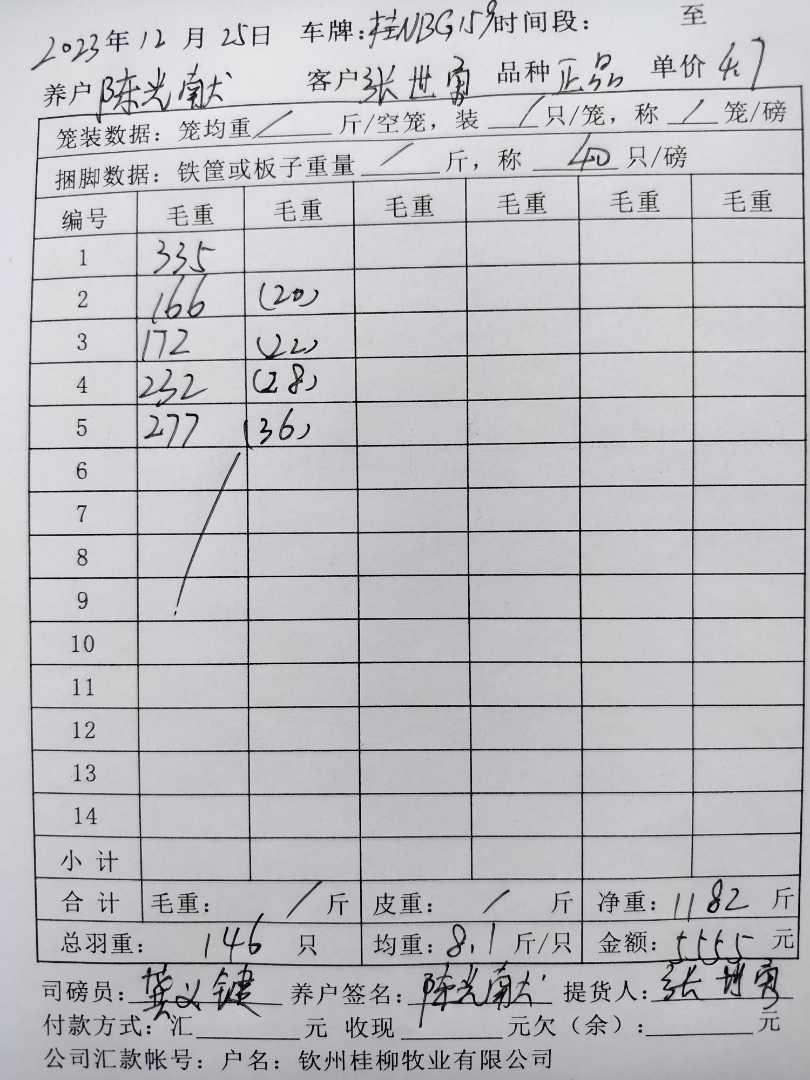 2023年12月25日 车牌:桂NBG159时间段: 至
养户陈光献 客户张世勇 品种正品 单价4.7
笼装数据: 笼均重/斤/空笼, 装/只/笼, 称/笼/磅
捆脚数据: 铁筐或板子重量/斤, 称40只/磅
编号 毛重 毛重 毛重 毛重 毛重 毛重
1 335
2 166 (20)
3 172 (22)
4 232 (28)
5 277 (36)
6
7
8
9
10
11
12
13
14
小计
合计 毛重: /斤 皮重: /斤 净重: 1182斤
总羽重: 146只 均重: 8.1斤/只 金额: 5555元
司磅员: 龚义键 养户签名: 陈光献 提货人: 张世勇
付款方式: 汇______元 收现______元欠(余):______元
公司汇款帐号: 户名: 钦州桂柳牧业有限公司